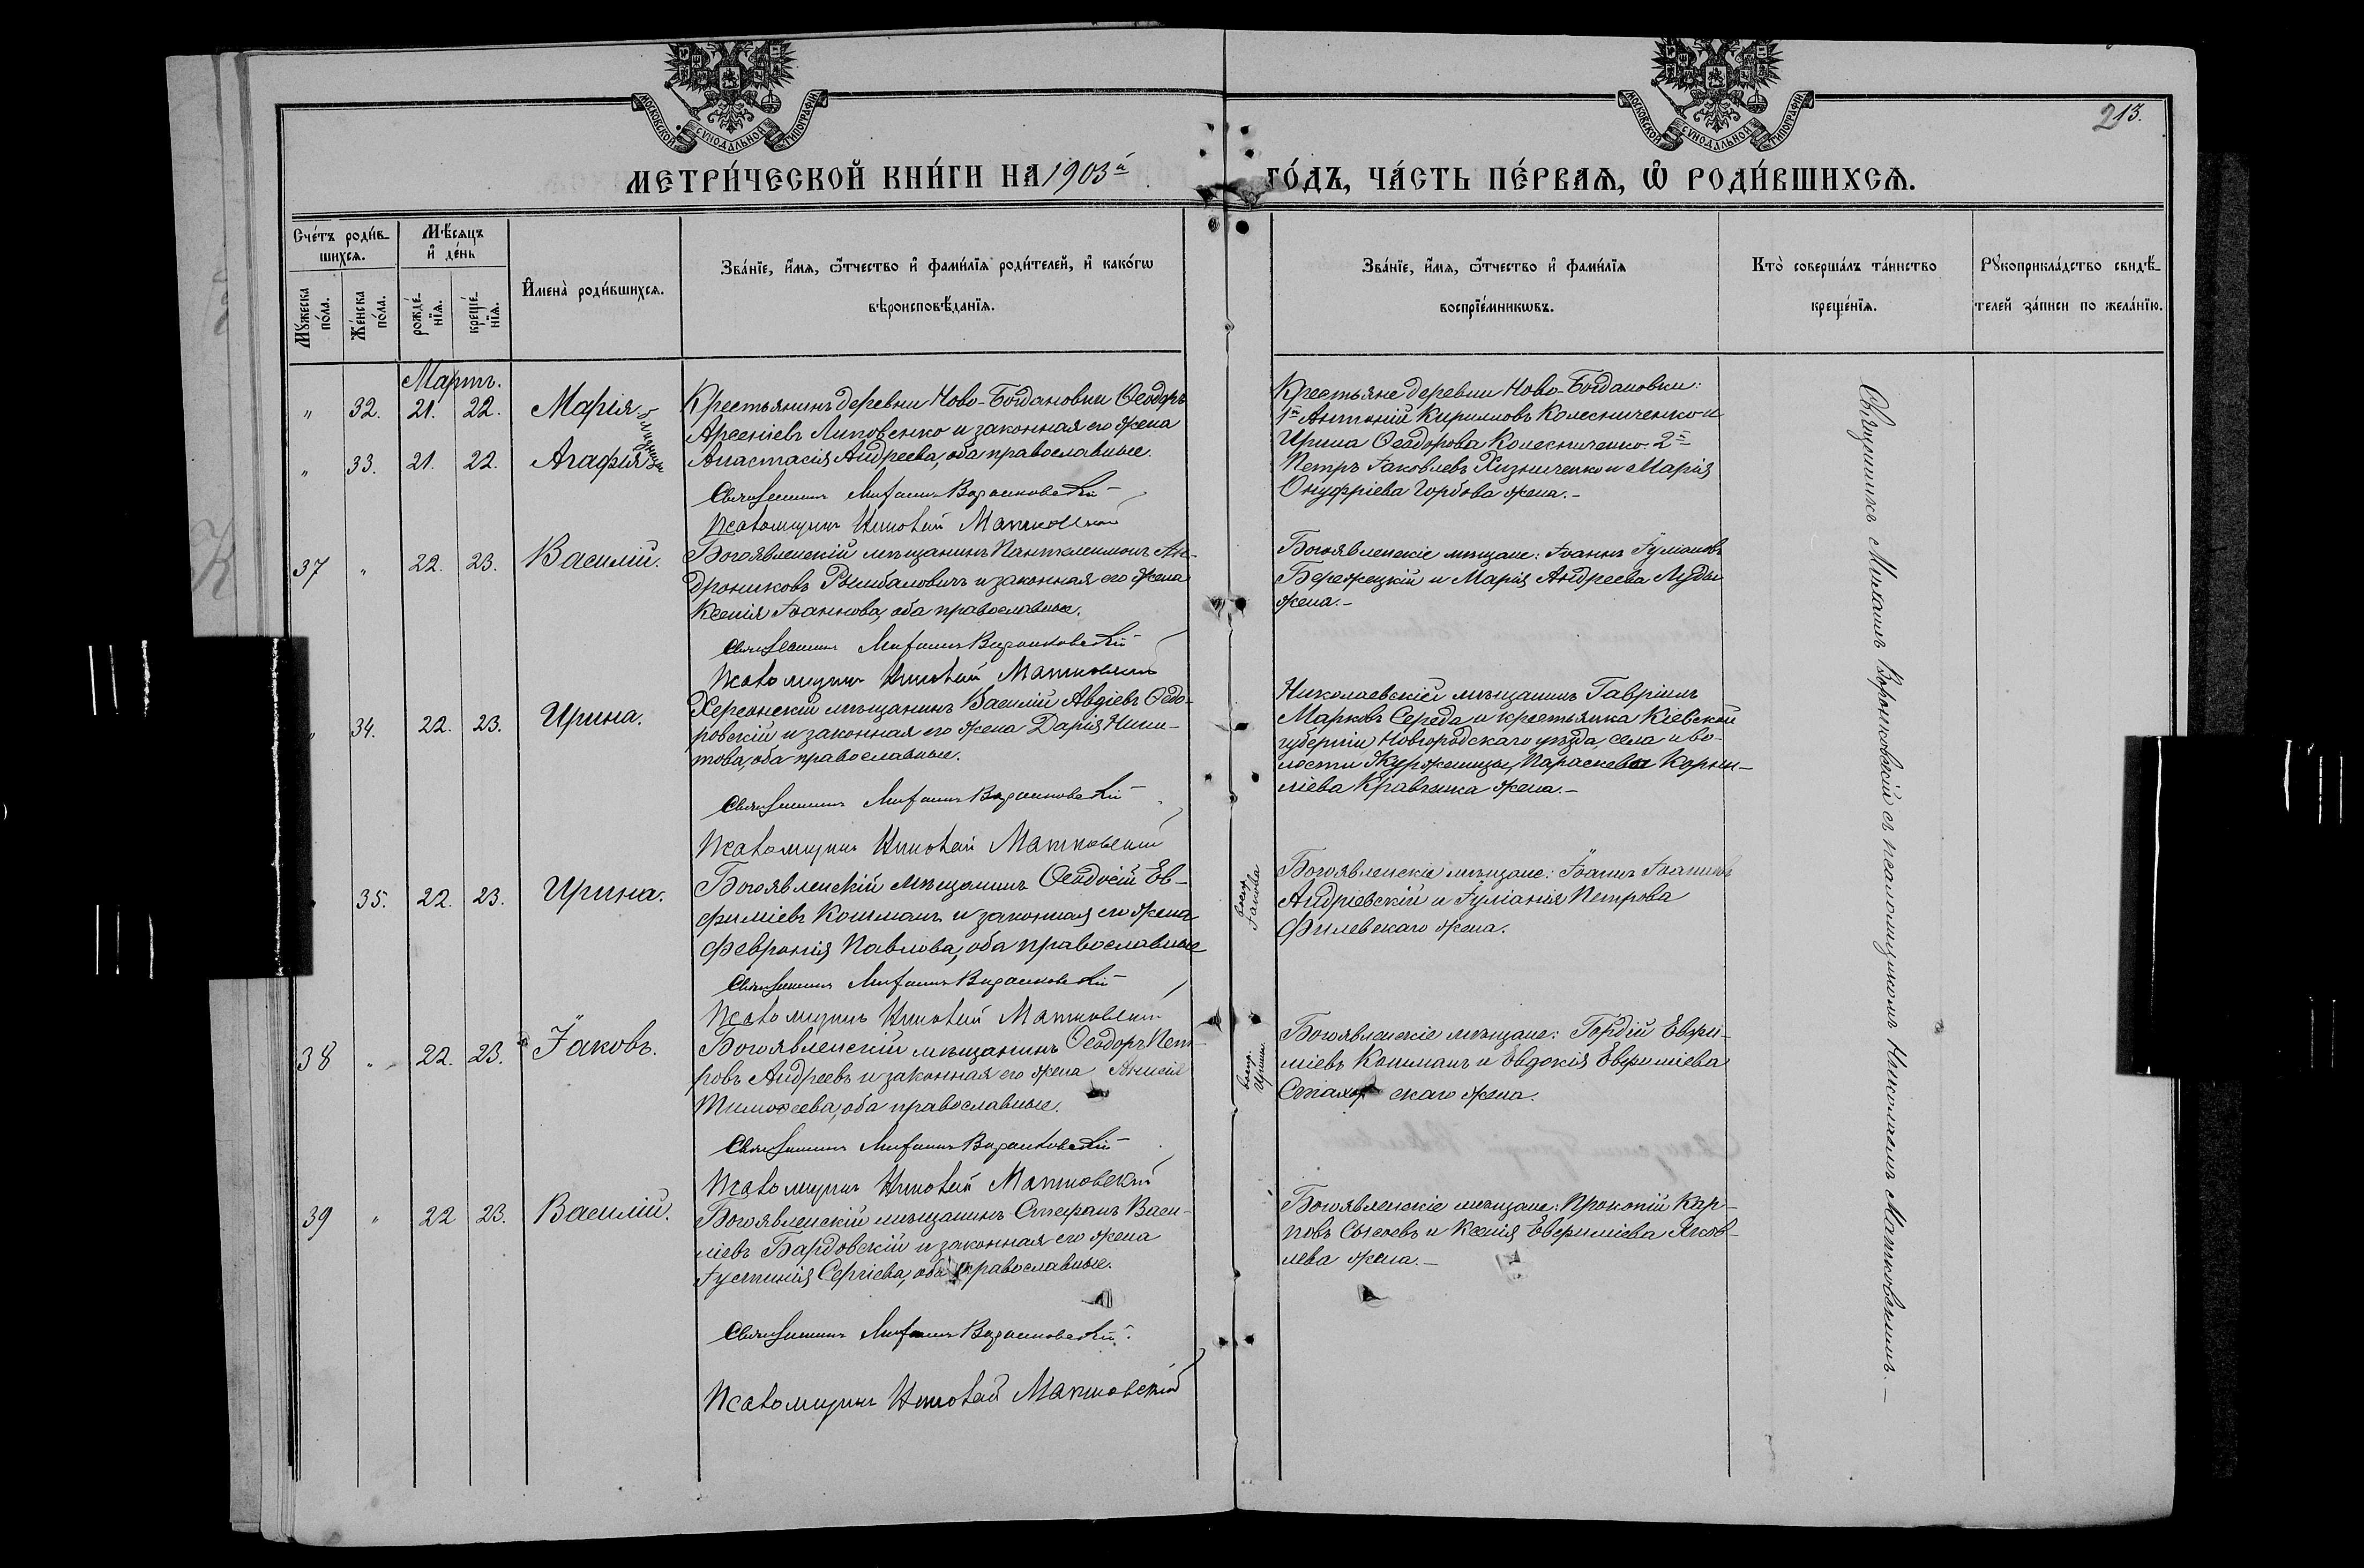 МОСКОВСКОЙ СѴНОДАЛЬНОЙ ТИПОГРАФІИ
МОСКОВСКОЙ СѴНОДАЛЬНОЙ ТИПОГРАФІИ
213.
МЕТРИ́ЧЕСКОЙ КНИ́ГИ НА 1903й
ГО́ДЪ, ЧА́СТЬ ПЕ́РВАѦ, Ѽ РОДИ́ВШИХСѦ.
Сче́тъ роди́в-
шихсѧ.
Мꙋ́жеска по́ла.
Же́нска по́ла.
Мѣ́сяцъ
и҆ де́нь
рожде́-
нїѧ.
креще́-
нїѧ.
И҆мена̀ роди́вшихсѧ.
Зва́нїе, и҆́мѧ, ѻ҆́тчество и҆ фами́лїѧ роди́телей, и҆ како́гѡ
вѣроисповѣ́данїѧ.
Зва́нїе, и҆́мѧ, ѻ҆́тчество и҆ фами́лїѧ
воспрїе́мникѡвъ.
Кто̀ соверша́лъ та́инство
креще́нїѧ.
Рꙋкоприкла́дство свидѣ́-
телей за́писи по жела́нїю.
Мартъ.
" 32. 21. 22. Марія
" 33. 21. 22. Агафія
близнецы
Крестьянинъ деревни Ново-Богдановки Ѳеодоръ
Арсеніевъ Липовенко и законная его жена
Анастасія Андреева, оба православные.
Священникъ Михаилъ Воронковскій
Псаломщикъ Николай Матковскій
Крестьяне деревни Ново-Богдановки:
1й Антоній Кирилловъ Колесниченко и
Ирина Ѳеодорова Колесниченко. 2й
Петръ Іаковлевъ Хизниченко и Марія
Онуфріева Горбова жена.-
37 " 22. 23. Василій.
Богоявленскій мѣщанинъ Пантелеимонъ Ан-
дрониковъ Рымбаловичъ и законная его жена
Ксенія Іоаннова, оба православные.
Священникъ Михаилъ Воронковскій
Псаломщикъ Николай Матковскій
Богоявленскіе мѣщане: Іоаннъ Іуліановъ
Бережецкій и Марія Андреева Луды
жена.-
" 34. 22. 23. Ирина.
Херсонскій мѣщанинъ Василій Авдіевъ Ѳедо-
ровскій и законная его жена Дарія Ники-
това, оба православные.
Священникъ Михаилъ Воронковскій
Псаломщикъ Николай Матковскій
Николаевскій мѣщанинъ Гавріилъ
Марковъ Середа и крестьянка Кіевской
губерніи Новгородскаго уѣзда, села и во-
лости Журженицы, Параскева Корни-
ліева Кравченка жена.-
35. 22. 23. Ирина.
Богоявленскій мѣщанинъ Ѳеодосій Ев-
фиміевъ Кошманъ и законная его жена
Февронія Павлова, оба православные
Священникъ Михаилъ Воронковскій
Псаломщикъ Николай Матковскій
воспр. Іакова
Богоявленскіе мѣщане: Іоаннъ Іоанновъ
Андріевскій и Іуліанія Петрова
Филевскаго жена.
38 " 22. 23. Іаковъ.
Богоявленскій мѣщанинъ Ѳеодоръ Пет-
ровъ Андреевъ и законная его жена Анисія
Тимоѳеева, оба православные.
Священникъ Михаилъ Воронковскій
Псаломщикъ Николай Матковскій
воспр. Ирины.
Богоявленскіе мѣщане: Гордій Евфи-
міевъ Кошманъ и Евдокія Евфиміева
Стахов скаго жена.
39 " 22 23. Василій.
Богоявленскій мѣщанинъ Стефанъ Васи-
ліевъ Бардовскій и законная его жена
Іустинія Сергіева, оба православные.
Священникъ Михаилъ Воронковскій.
Псаломщикъ Николай Матковскій
Богоявленскіе мѣщане: Прокопій Кар-
повъ Сысоевъ и Ксенія Евфиміева Яков-
лева жена.-
Священникъ Михаилъ Воронковскій съ псаломщикомъ Николаемъ Матковскимъ.-